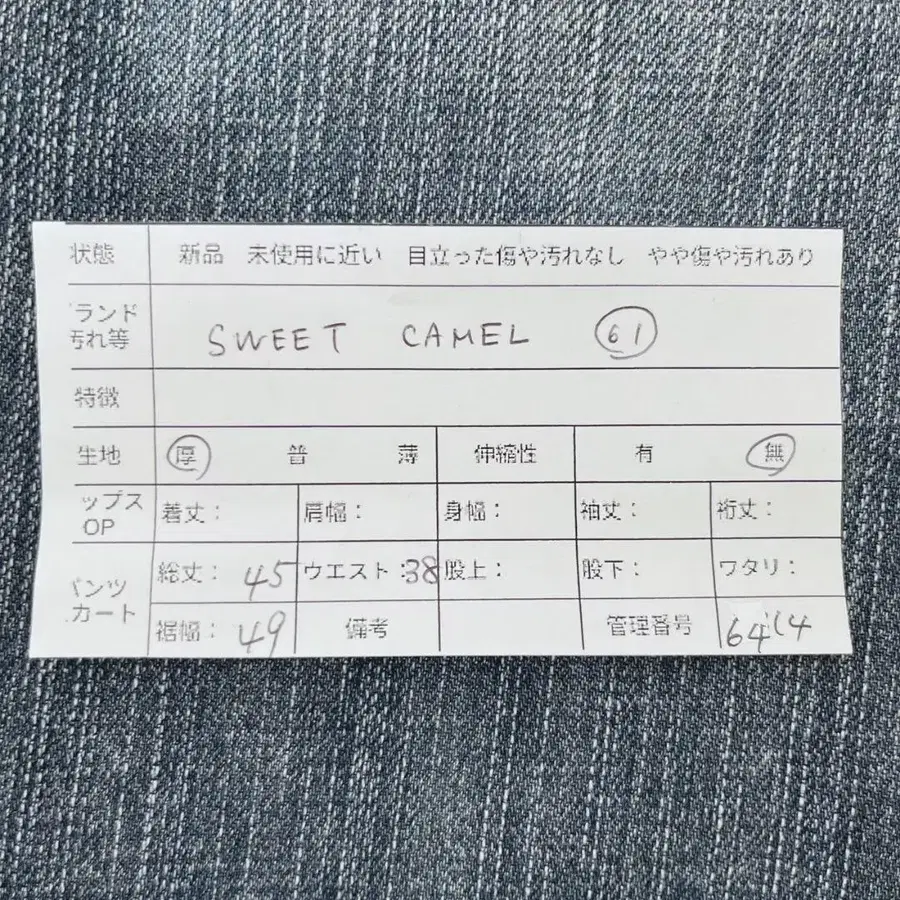 状態 新品 未使用に近い 目立った傷や汚れなし やや傷や汚れあり
ランド
汚れ等 SWEET CAMEL 61
特徴
生地 厚 普 薄 伸縮性 有 無
ップス
OP 着丈： 肩幅： 身幅： 袖丈： 裄丈：
総丈：45 ウエスト：38 股上： 股下： ワタリ：
パンツ
カート
裾幅：49 備考 管理番号